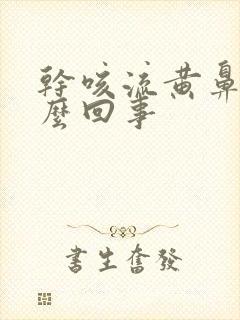 幹咳流黃鼻
麼回事
書生奮發